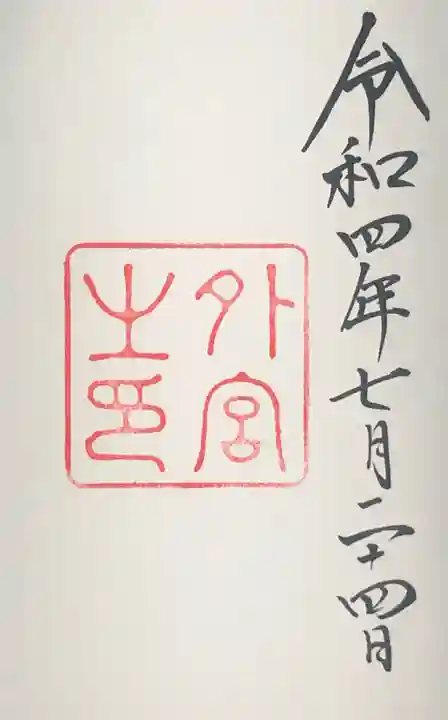 令和四年七月二十四日
外宮
之印